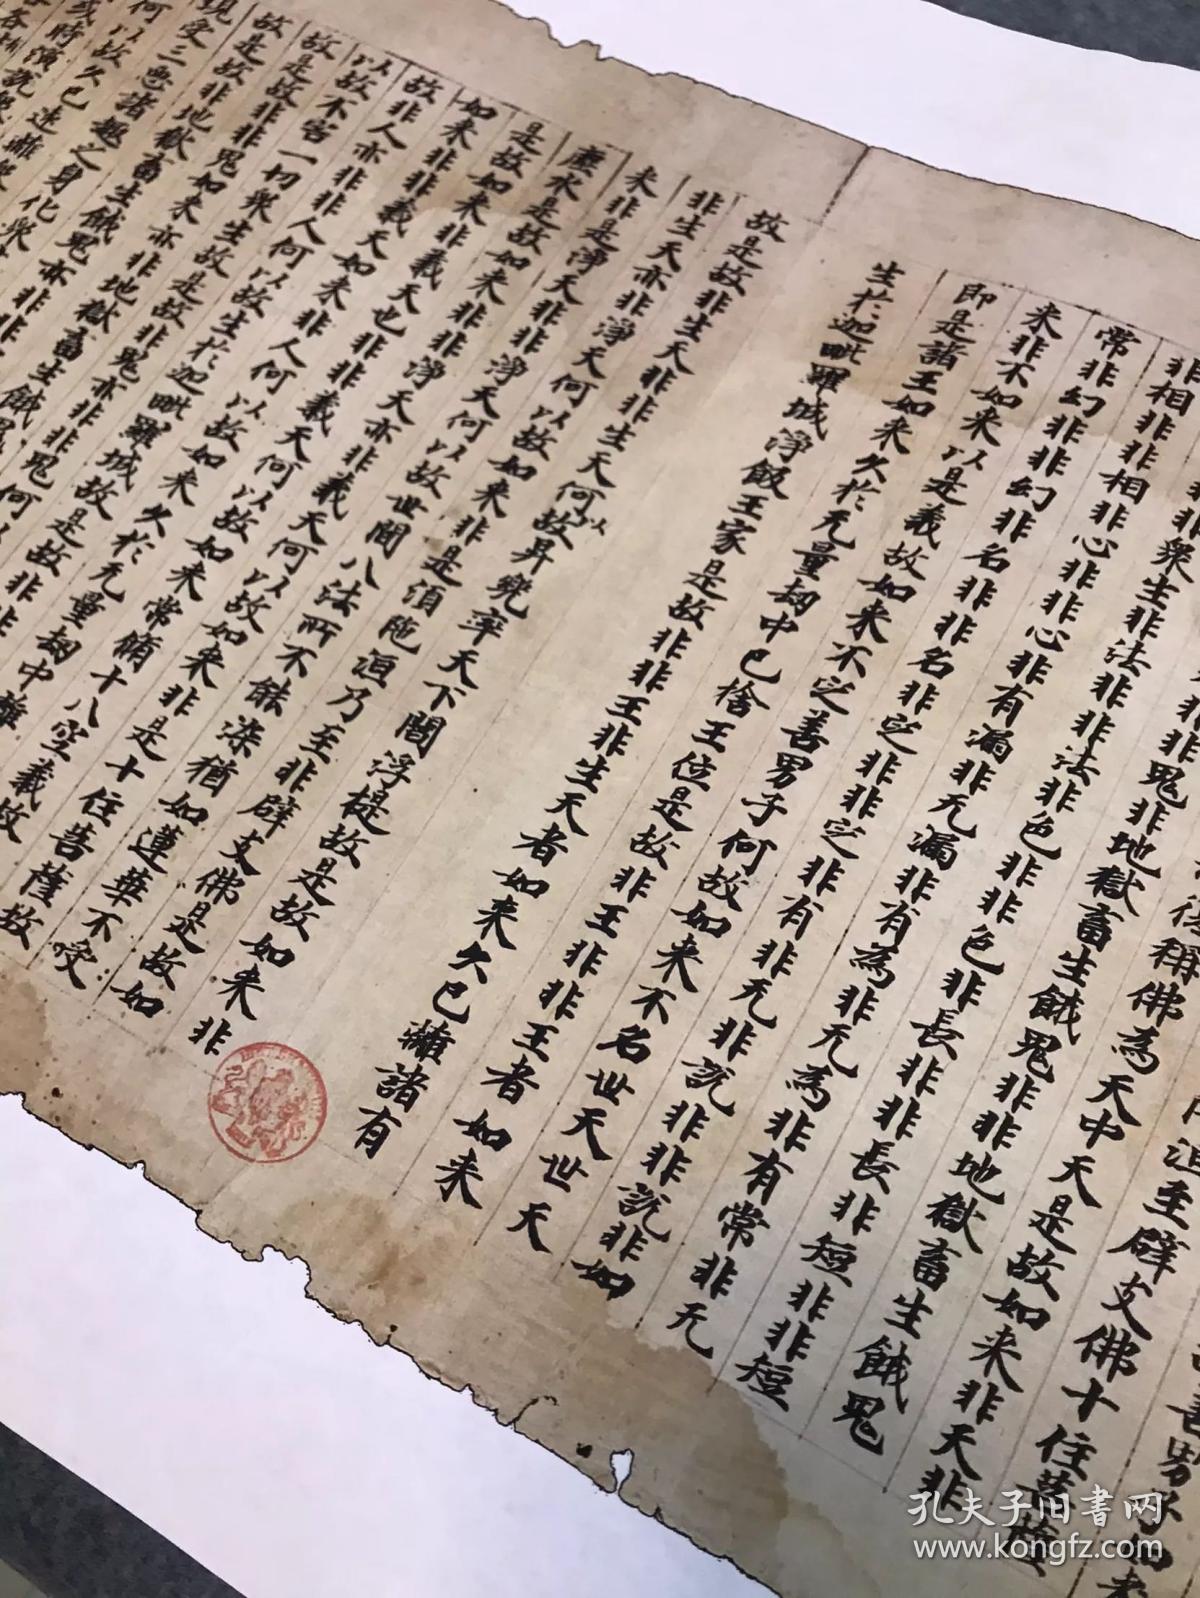 善男子如来
洹至辟支佛十住菩薩
稱佛為天中天是故如来非天非
非鬼非非鬼非地獄畜生餓鬼非非地獄畜生餓鬼
非非衆生非法非非法非色非非色非長非非長非短非非短
非相非非相非心非非心非有漏非无漏非有為非无為非有常非无
常非幻非非幻非名非非名非定非非定非有非无非說非非說非如
来非不如来以是義故如来不定善男子何故如来不名世天世天
即是諸王如来久於无量劫中已捨王位是故非王非非王者如来
生於迦毗羅城淨飯王家是故非非王非生天者如来久已離諸有
故是故非生天非非生天何以故昇兜率天下閻浮提故是故如来非
非生天亦非淨天何以故如来非是須陁洹乃至非辟支佛是故如
来非是淨天非非淨天何以故世間八法所不能染猶如蓮華不受
塵水是故如来非非淨天亦非義天何以故如来非是十住菩薩故
是故如来非義天也非非義天何以故如来常脩十八空義故
如来非非義天如来非人何以故如来久於无量劫中離
故非人亦非非人何以故生於迦毗羅城故是故非非
以故不害一切衆生故是故非鬼亦非非鬼何以
故是故非非鬼如来亦非地獄畜生餓鬼
故是故非地獄畜生餓鬼亦非非
現受三惡諸趣之身化衆
何以故久已遠離
或時演說
孔夫子旧书网
www.kongfz.com